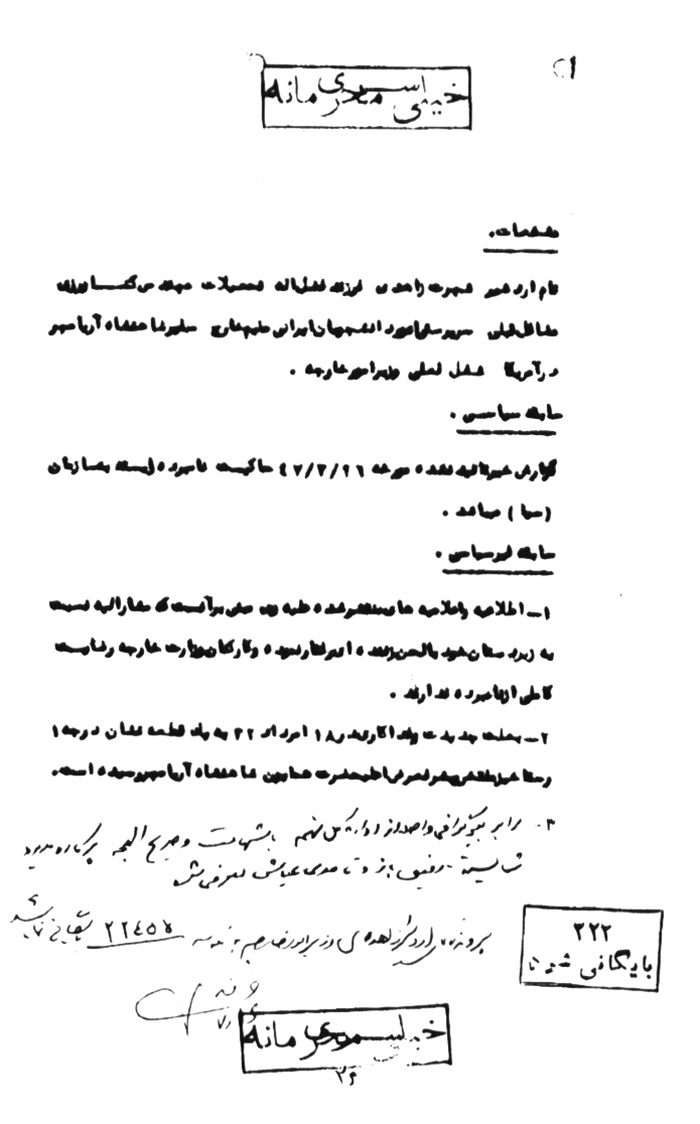 خیلی محرمانه
مشخصات.
نام اردشیر شهرت زاهدی فرزند فضل‌اله تحصیلات مهندس کشاورزی
مشاغل قبلی سرپرستی امور دانشجویان ایرانی مقیم خارج سفیر شاهنشاه آریامهر
در آمریکا شغل فعلی وزیر امور خارجه .
سابقه سیاسی .
گزارش خبر تائید نشده مورخه ۴۷/۲/۲۶ حاکیست نامبرده وابسته به سازمان
(سیا) میباشد .
سابقه غیرسیاسی .
۱ـ اطلاعیه و اعلامیه های منتشر شده علیه وی مبنی برآنست که مشارالیه نسبت
به زیردستان خود با لحن زننده ای رفتار نموده و کارکنان وزارت خارجه رضایت
کاملی از نامبرده ندارند .
۲ـ بعلت جدیت و فداکاری در ۲۸ امرداد ۳۲ به یک قطعه نشان درجه ۱
رستاخیز مفتخر و بشرف عرض اعلیحضرت همایون شاهنشاه آریامهر رسیده است.
۳. برابر بیوگرافی واصله از اداره کل نهم با شهامت و صریح اللهجه پرکار
شایسته رفیق باز و تا حدی عیاش معرفی شده
پرونده اردشیر زاهدی وزیر امور خارجه ۲۲۴۵۵ بایگانی شد
۲۲۲
بایگانی شود
خیلی محرمانه
۳۶